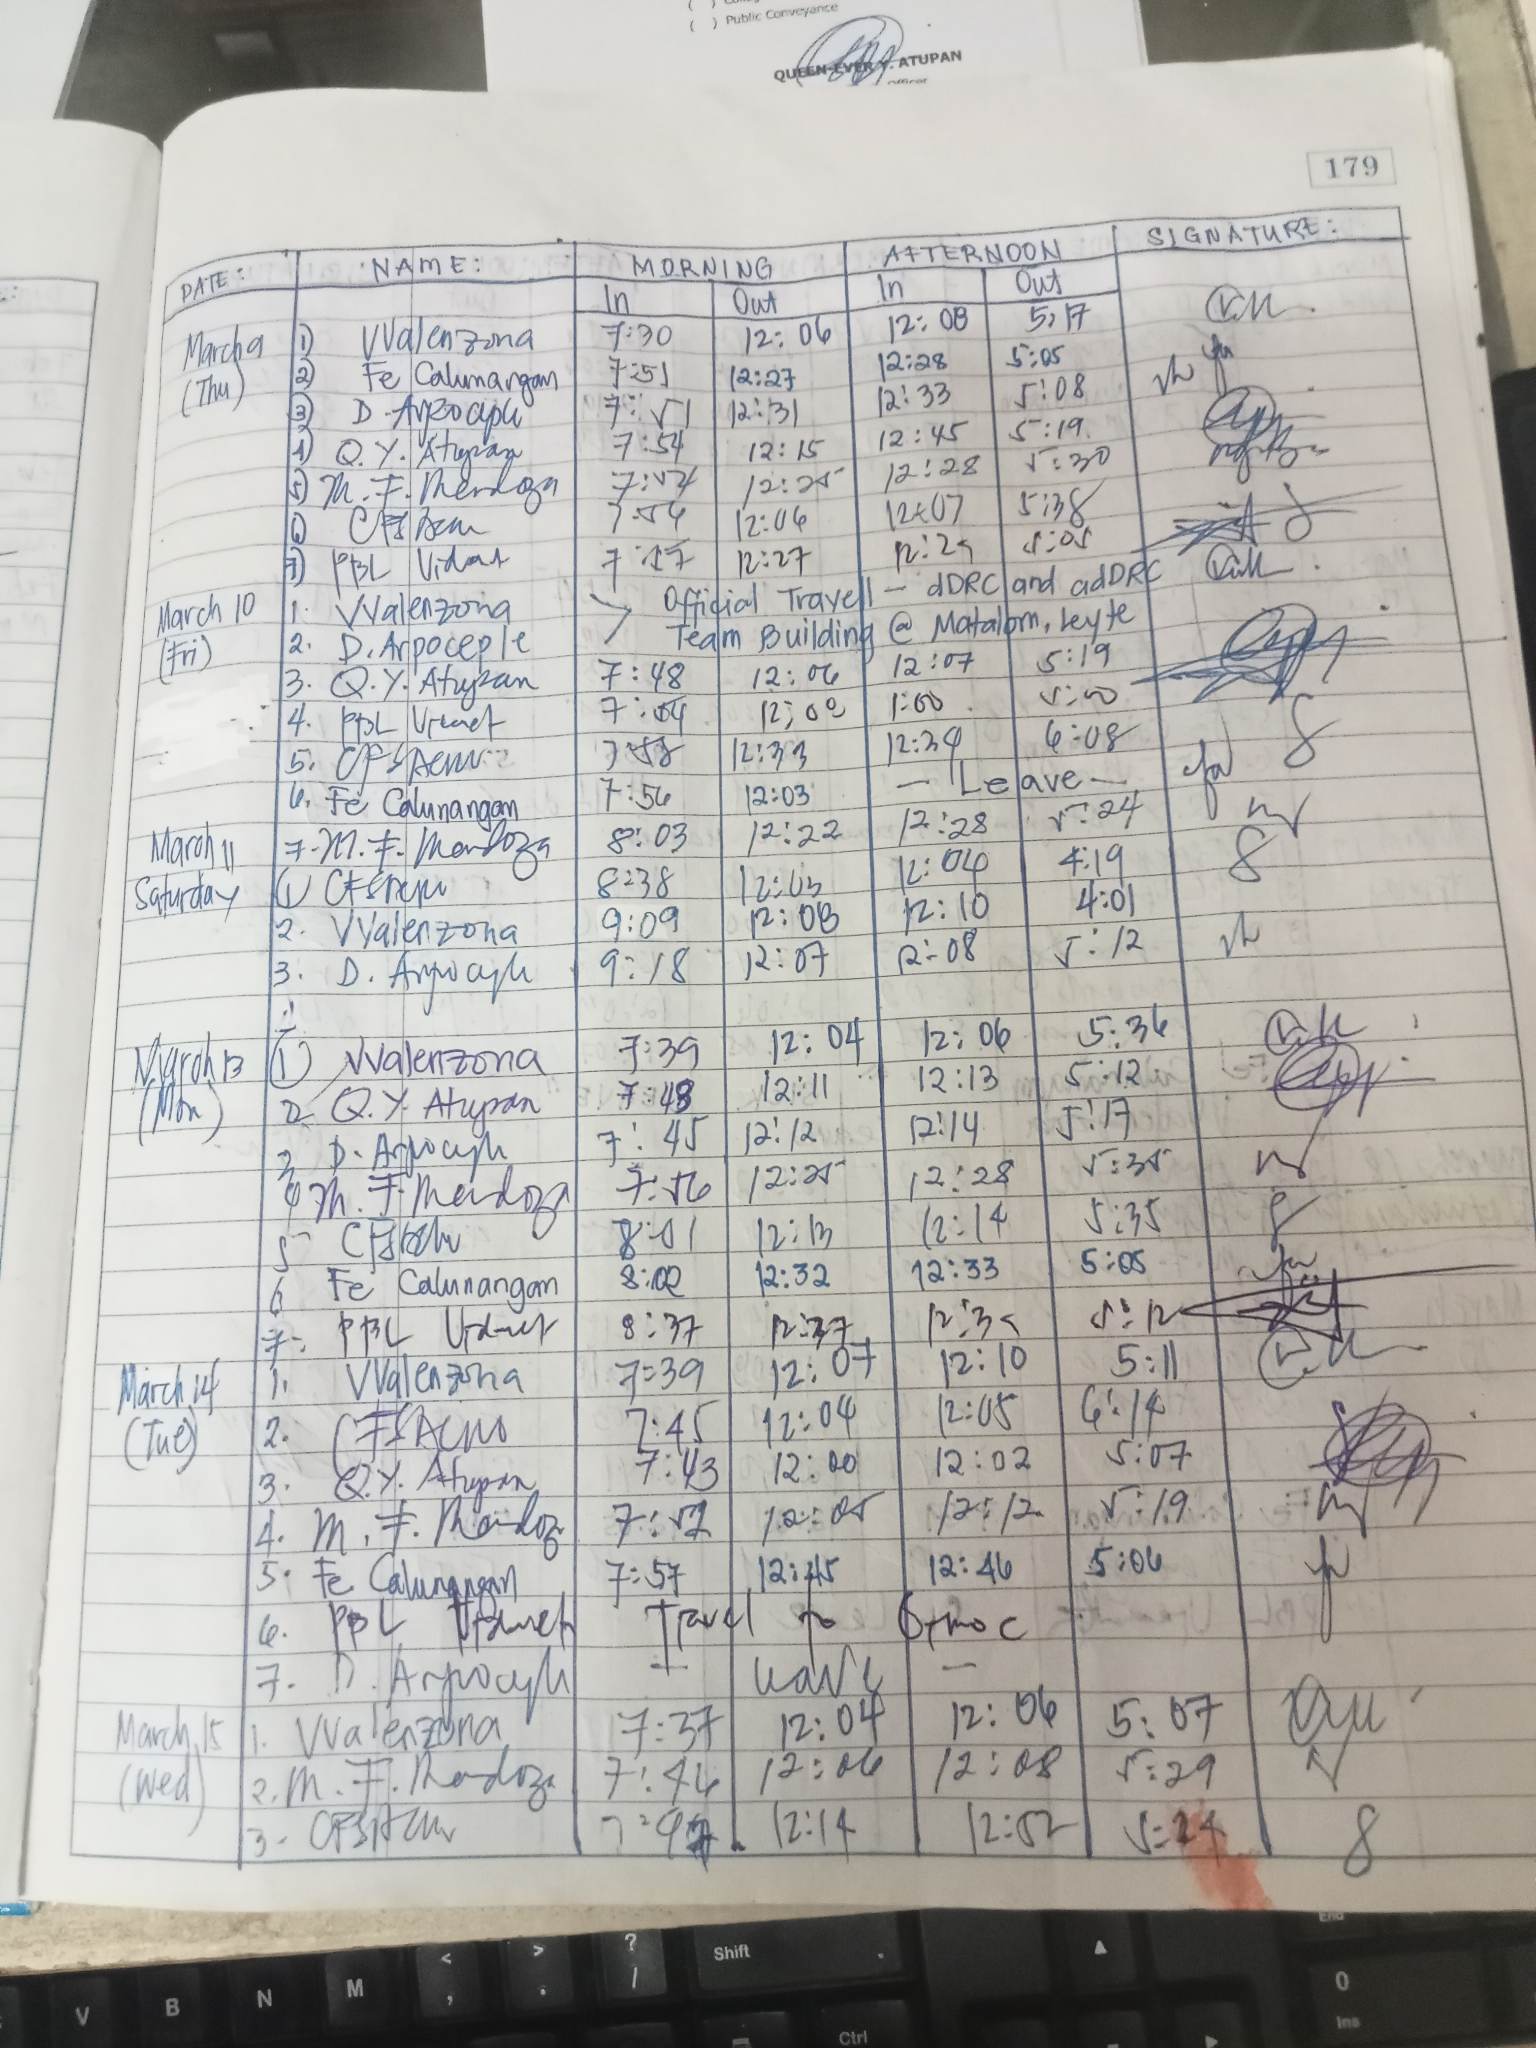 ( ) Public Conveyance
QUEEN-EVER Y. ATUPAN
179
DATE: NAME: MORNING AFTERNOON SIGNATURE:
In Out In Out
March 9 1) VValenzona 7:30 12:06 12:08 5:17
(Thu) 2) Fe Calunangan 7:51 12:27 12:28 5:05
3) D. Arpoceple 7:51 12:31 12:33 5:08
4) Q.Y. Atupan 7:54 12:15 12:45 5:19
5) M. F. Mendoza 7:54 12:25 12:28 5:30
6) 7:56 12:06 12:07 5:38
7) PBL 7:57 12:27 12:29 5:05
March 10 1. VValenzona Official Travell - dDRC and adDRC
(Fri) 2. D. Arpoceple Team Building @ Matalom, Leyte
3. Q.Y. Atupan 7:48 12:06 12:07 5:19
4. PBL 7:54 12:02 1:00 5:00
5. 7:58 12:33 12:34 6:08
6. Fe Calunangan 7:56 12:03 - Leave -
March 11 7. M. F. Mendoza 8:03 12:22 12:28 5:24
Saturday 1 8:38 12:03 12:04 4:19
2. VValenzona 9:09 12:08 12:10 4:01
3. D. Arpoceple 9:18 12:07 12:08 5:12
March 13 1 VValenzona 7:39 12:04 12:06 5:36
(Mon) 2 Q.Y. Atupan 7:48 12:11 12:13 5:12
3 D. Arpoceple 7:45 12:12 12:14 5:17
4 M. F. Mendoza 7:56 12:25 12:28 5:35
5 8:01 12:13 12:14 5:35
6 Fe Calunangan 8:02 12:32 12:33 5:05
7. PBL 8:37 12:37 12:39 5:12
March 14 1. VValenzona 7:39 12:07 12:10 5:11
(Tue) 2. 7:45 12:04 12:05 6:14
3. Q.Y. Atupan 7:43 12:00 12:02 5:07
4. M. F. Mendoza 7:52 12:05 12:12 5:19
5. Fe Calunangan 7:57 12:45 12:46 5:06
6. PBL Travel to Ormoc
7. D. Arpoceple - Leave -
March 15 1. VValenzona 7:37 12:04 12:06 5:07
(Wed) 2. M. F. Mendoza 7:46 12:06 12:08 5:29
3. 12:14 12:52 5:24
< > ? Shift End
V B N M , . / 0
Ctrl Ins